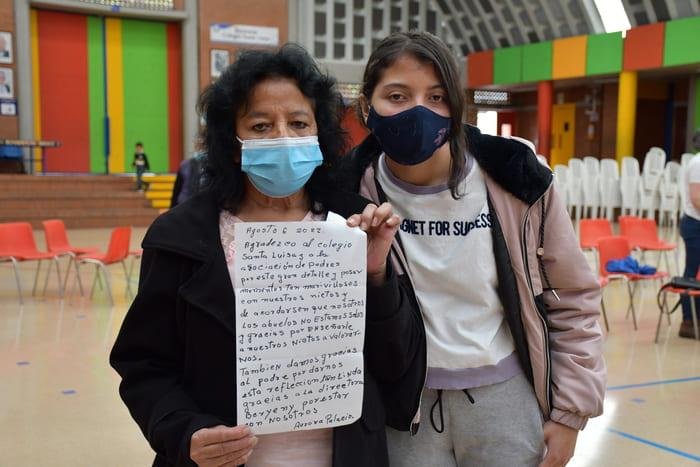 Agosto 6 2022.
Agradezco al colegio
Santa Luisa y a la
asociación de padres
por este gran detalle y pasar
momentos tan maravillosos
con nuestros nietos y
de acordarsen que nosotros
Los abuelos NO Estamos solos
y gracias por Enseñarle
a nuestros Nietos a valorar-
NOS.
Tambien darnos gracias
al padre por darnos
esta refleccion tan Linda
gracias a la directiva
Beryeny por estar
con NOSOTROS
Aurora Palacio.
GNET FOR SUCESS